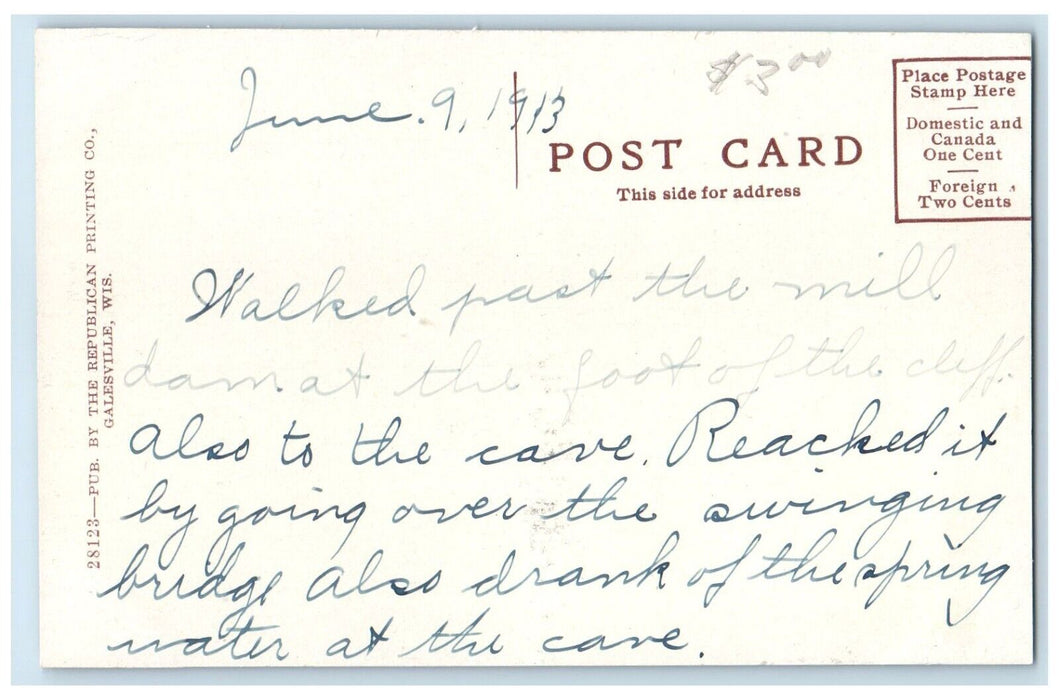 June. 9, 1913
$3.00
POST CARD
This side for address
Place Postage
Stamp Here
Domestic and
Canada
One Cent
Foreign
Two Cents
28123—PUB. BY THE REPUBLICAN PRINTING CO.,
GALESVILLE, WIS.
Walked past the mill
dam at the foot of the cliff.
Also to the cave. Reached it
by going over the swinging
bridge also drank of the spring
water at the cave.